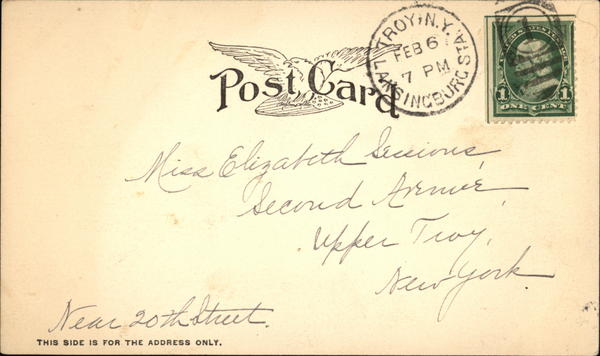 Post Card
TROY, N.Y.
FEB 6
7 PM
LANSINGBURG STA.
1 1
ONE CENT
Miss Elizabeth Sessions,
Second Avenue,
Upper Troy,
New York.
Near 20th Street.
THIS SIDE IS FOR THE ADDRESS ONLY.